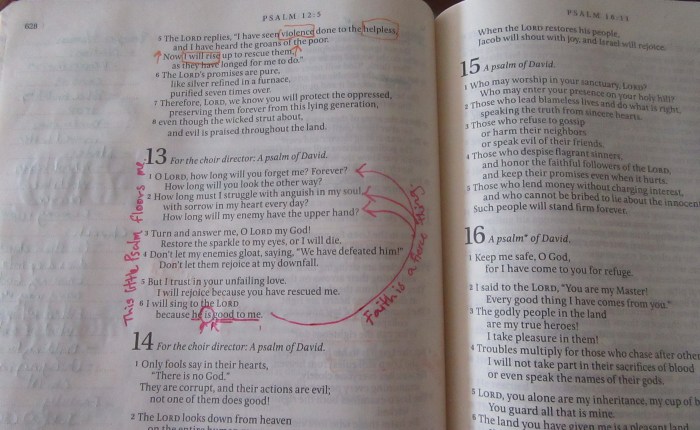 628
PSALM 12:5
5 The LORD replies, "I have seen violence done to the helpless,
and I have heard the groans of the poor.
Now I will rise up to rescue them,
as they have longed for me to do."
6 The LORD's promises are pure,
like silver refined in a furnace,
purified seven times over.
7 Therefore, LORD, we know you will protect the oppressed,
preserving them forever from this lying generation,
8 even though the wicked strut about,
and evil is praised throughout the land.
13 For the choir director: A psalm of David.
1 O LORD, how long will you forget me? Forever?
How long will you look the other way?
2 How long must I struggle with anguish in my soul,
with sorrow in my heart every day?
How long will my enemy have the upper hand?
3 Turn and answer me, O LORD my God!
Restore the sparkle to my eyes, or I will die.
4 Don't let my enemies gloat, saying, "We have defeated him!"
Don't let them rejoice at my downfall.
5 But I trust in your unfailing love.
I will rejoice because you have rescued me.
6 I will sing to the LORD
because he is good to me.
This little Psalm floors me.
Faith is a fierce thing
14 For the choir director: A psalm of David.
1 Only fools say in their hearts,
"There is no God."
They are corrupt, and their actions are evil;
not one of them does good!
2 The LORD looks down from heaven
on the entire human
PSALM 16:11
When the LORD restores his people,
Jacob will shout with joy, and Israel will rejoice.
15 A psalm of David.
1 Who may worship in your sanctuary, LORD?
Who may enter your presence on your holy hill?
2 Those who lead blameless lives and do what is right,
speaking the truth from sincere hearts.
3 Those who refuse to gossip
or harm their neighbors
or speak evil of their friends.
4 Those who despise flagrant sinners,
and honor the faithful followers of the LORD,
and keep their promises even when it hurts.
5 Those who lend money without charging interest,
and who cannot be bribed to lie about the innocent
Such people will stand firm forever.
16 A psalm* of David.
1 Keep me safe, O God,
for I have come to you for refuge.
2 I said to the LORD, "You are my Master!
Every good thing I have comes from you."
3 The godly people in the land
are my true heroes!
I take pleasure in them!
4 Troubles multiply for those who chase after other
I will not take part in their sacrifices of blood
or even speak the names of their gods.
5 LORD, you alone are my inheritance, my cup of b
You guard all that is mine.
6 The land you have given me is a pleasant land